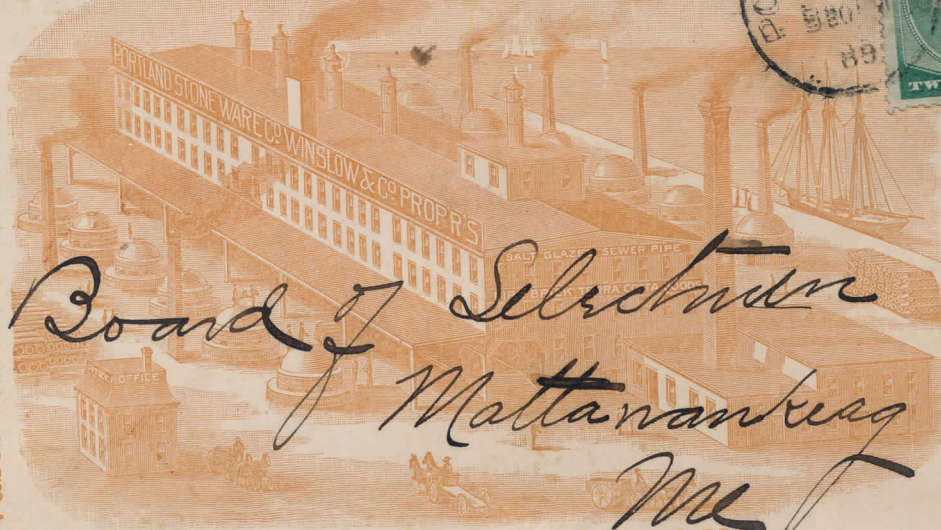 PORTLAND STONE WARE CO. WINSLOW & CO. PROP'R'S
SALT GLAZED SEWER PIPE
BRICK TERRA COTTA GOODS
OFFICE
89
TW
Board of Selectmen
Mattawankeag
Me